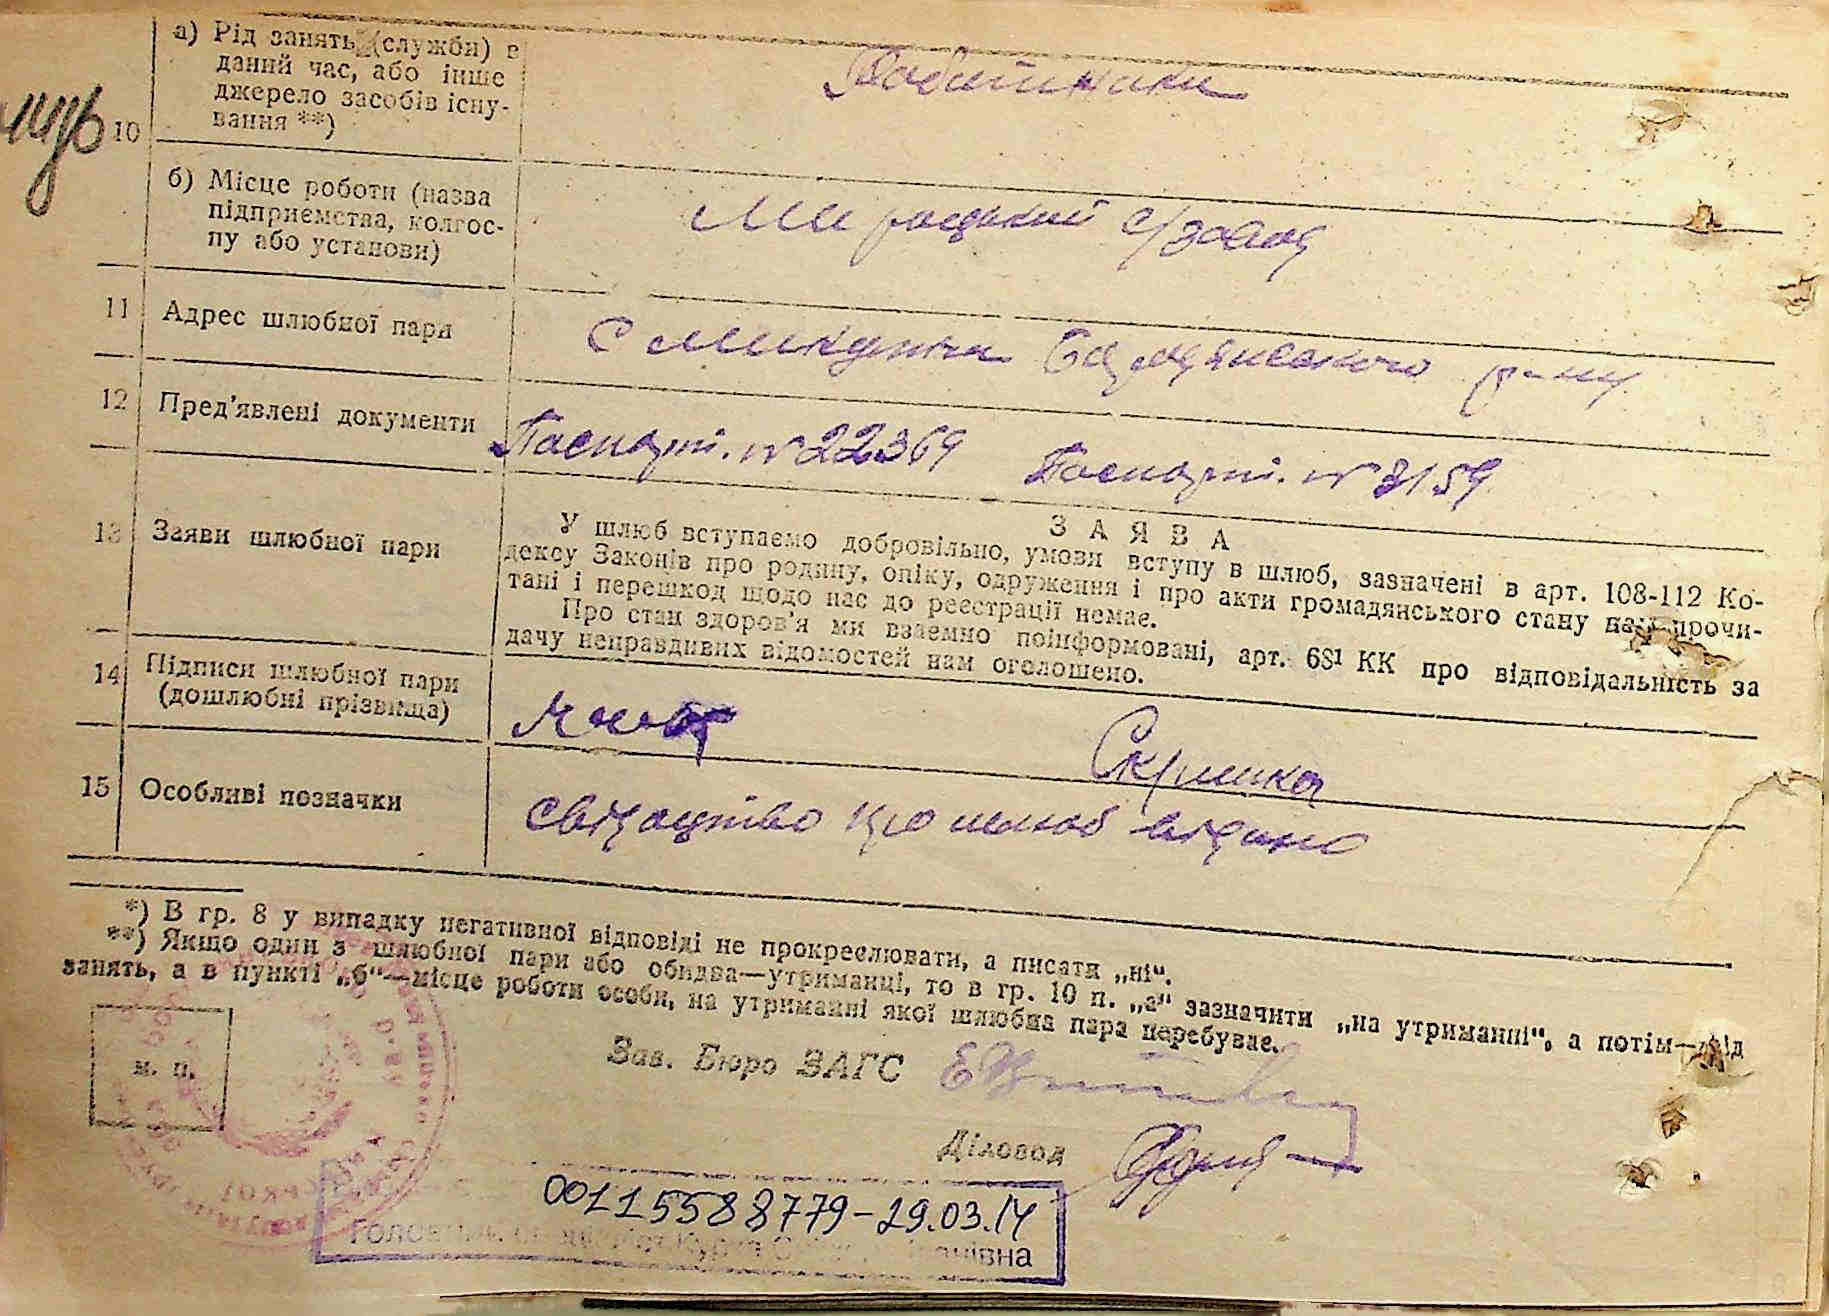 а) Рід занять (служби) в
даний час, або інше
джерело засобів існу-
вання **)
Робітники
10
б) Місце роботи (назва
підприємства, колгос-
пу або установи)
Мироцький с/завод
11 Адрес шлюбної пари
с Микуличі Бородянського р-ну
12 Пред'явлені документи
Паспорт. № 22369 Паспорт. № 3159
13 Заяви шлюбної пари
ЗАЯВА
У шлюб вступаємо добровільно, умови вступу в шлюб, зазначені в арт. 108-112 Ко-
дексу Законів про родину, опіку, одруження і про акти громадянського стану нам прочи-
тані і перешкод щодо нас до реєстрації немає.
Про стан здоров'я ми взаємно поінформовані, арт. 68¹ КК про відповідальність за
дачу неправдивих відомостей нам оголошено.
14 Підписи шлюбної пари
(дошлюбні прізвища)
Скрипка
15 Особливі позначки
Свідоцтво про шлюб видано
*) В гр. 8 у випадку негативної відповіді не прокреслювати, а писати „ні“.
**) Якщо один з шлюбної пари або обидва—утриманці, то в гр. 10 п. „а“ зазначити „на утриманні“, а потім—рід
занять, а в пункті „б“—місце роботи особи, на утриманні якої шлюбна пара перебуває.
м. п.
Зав. Бюро ЗАГС
Діловод
00115588779-29.03.14